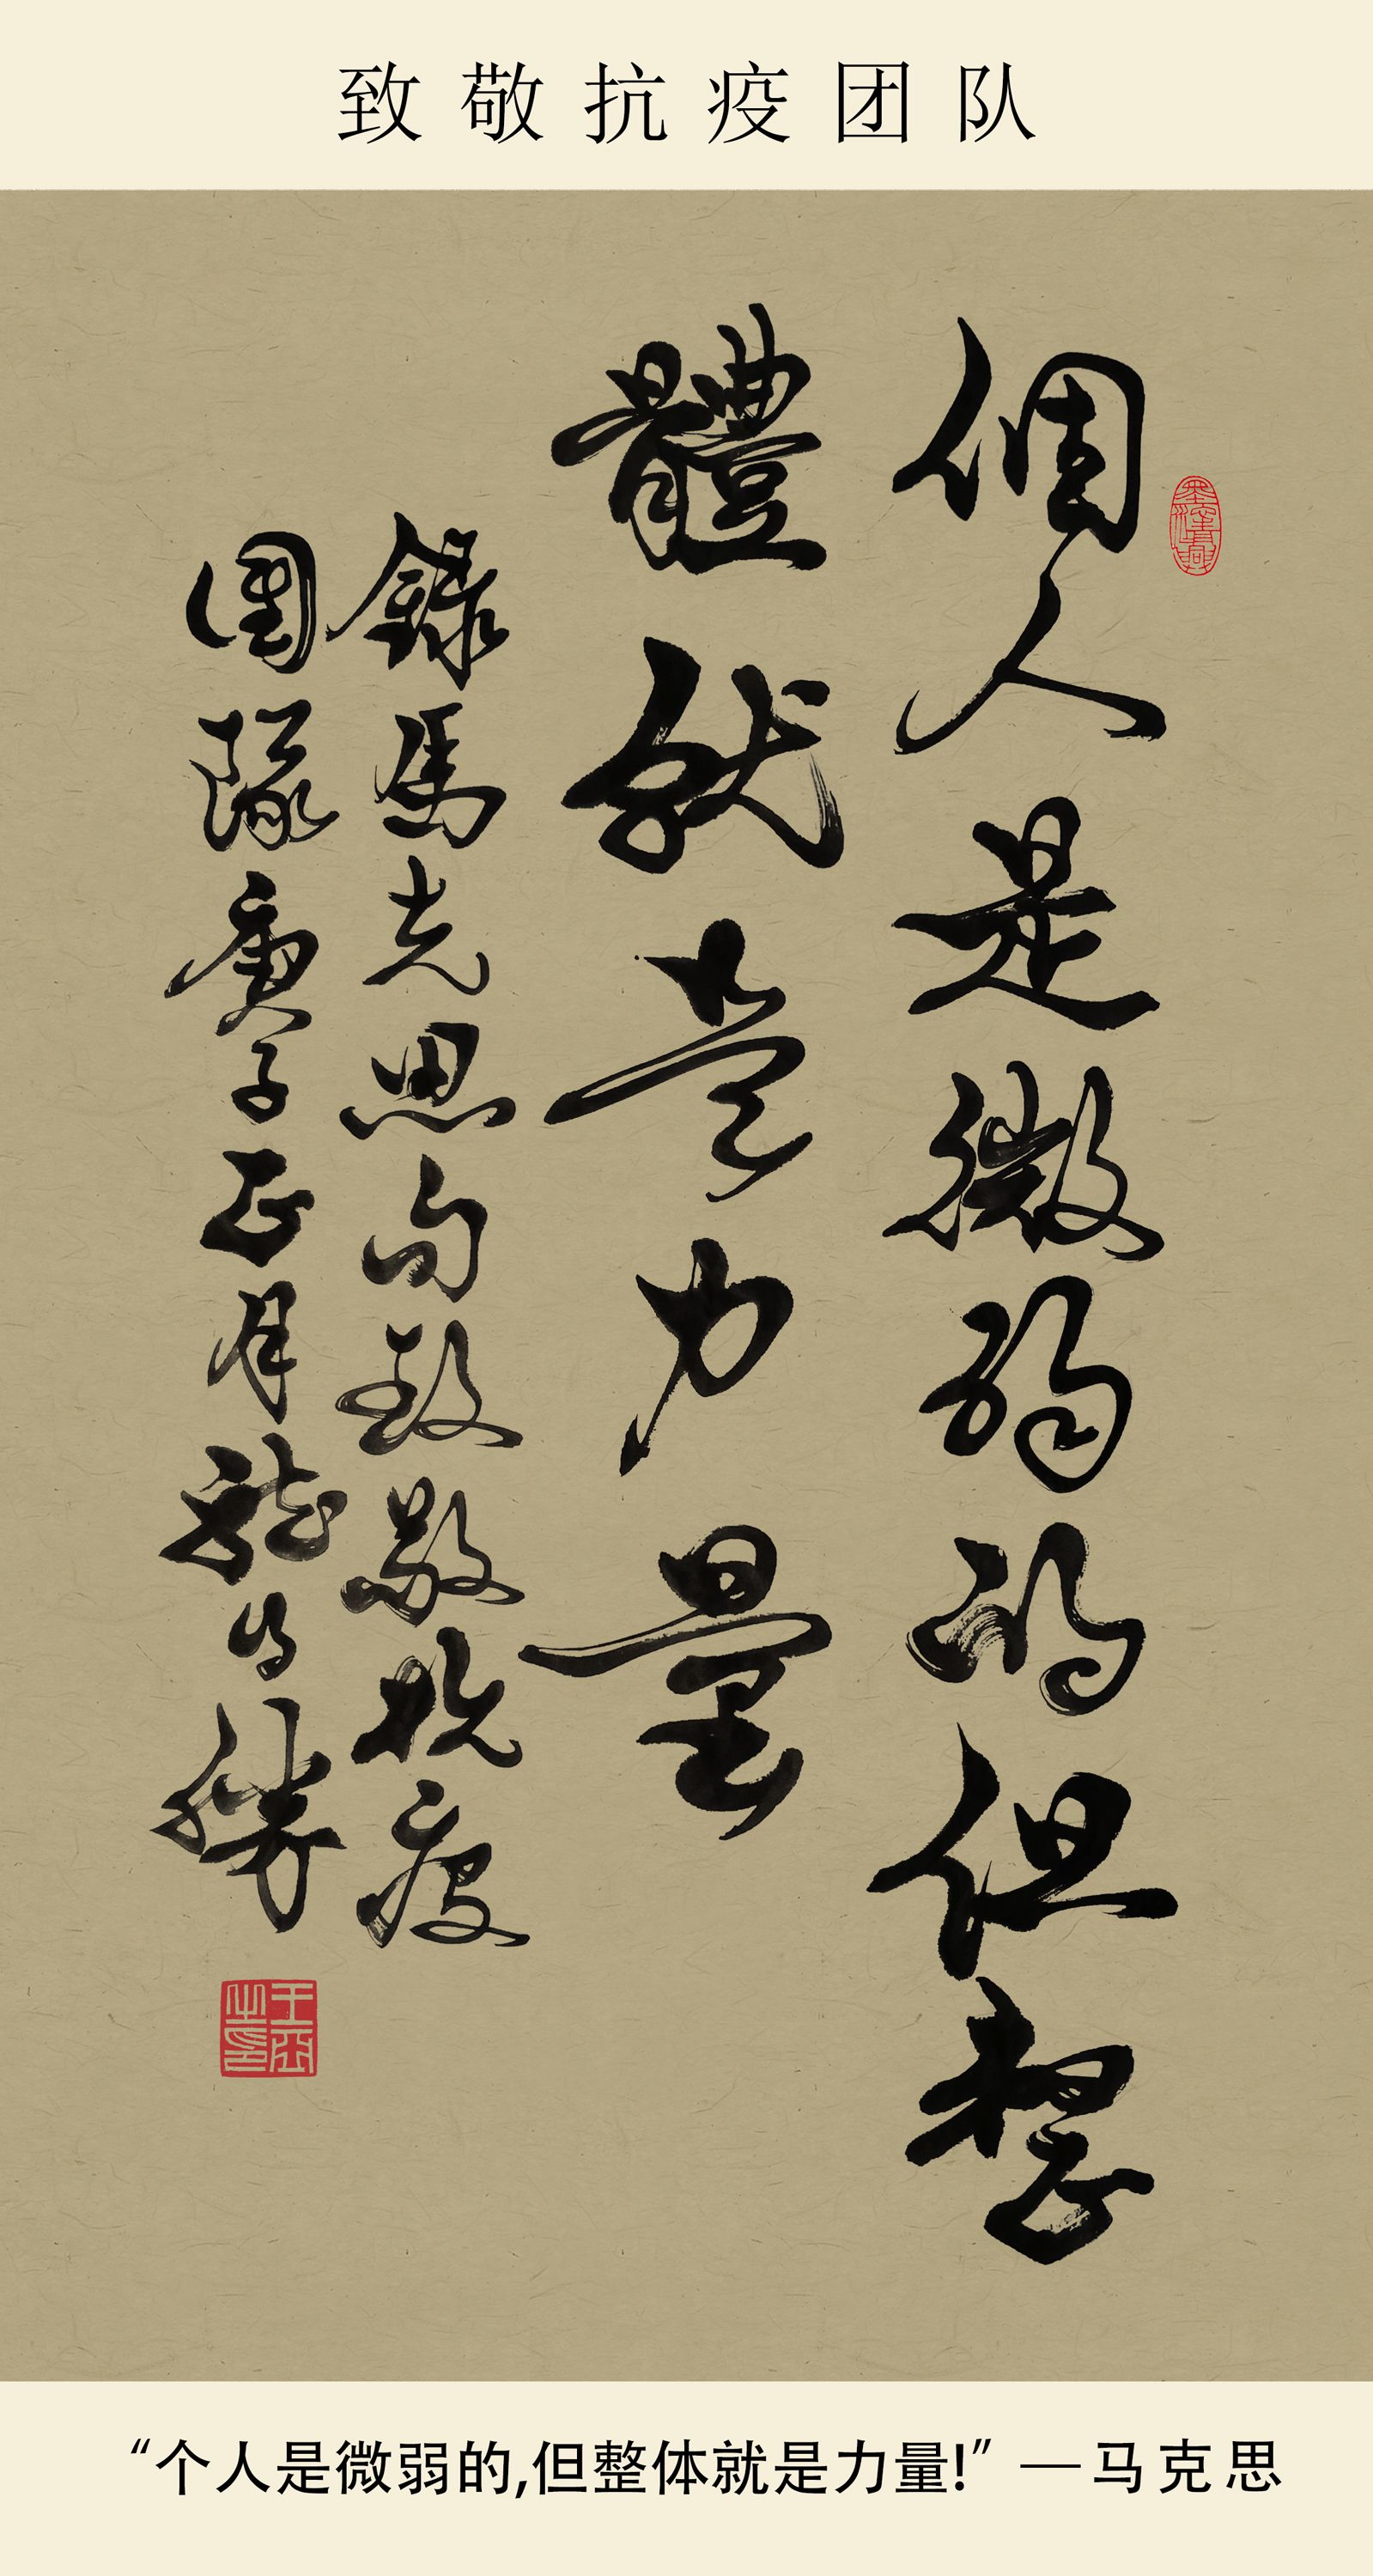 致敬抗疫团队
個人是微弱的但整
體就是力量
錄馬克思句致敬抗疫
團隊庚子正月龍勝
“个人是微弱的,但整体就是力量!”—马克思